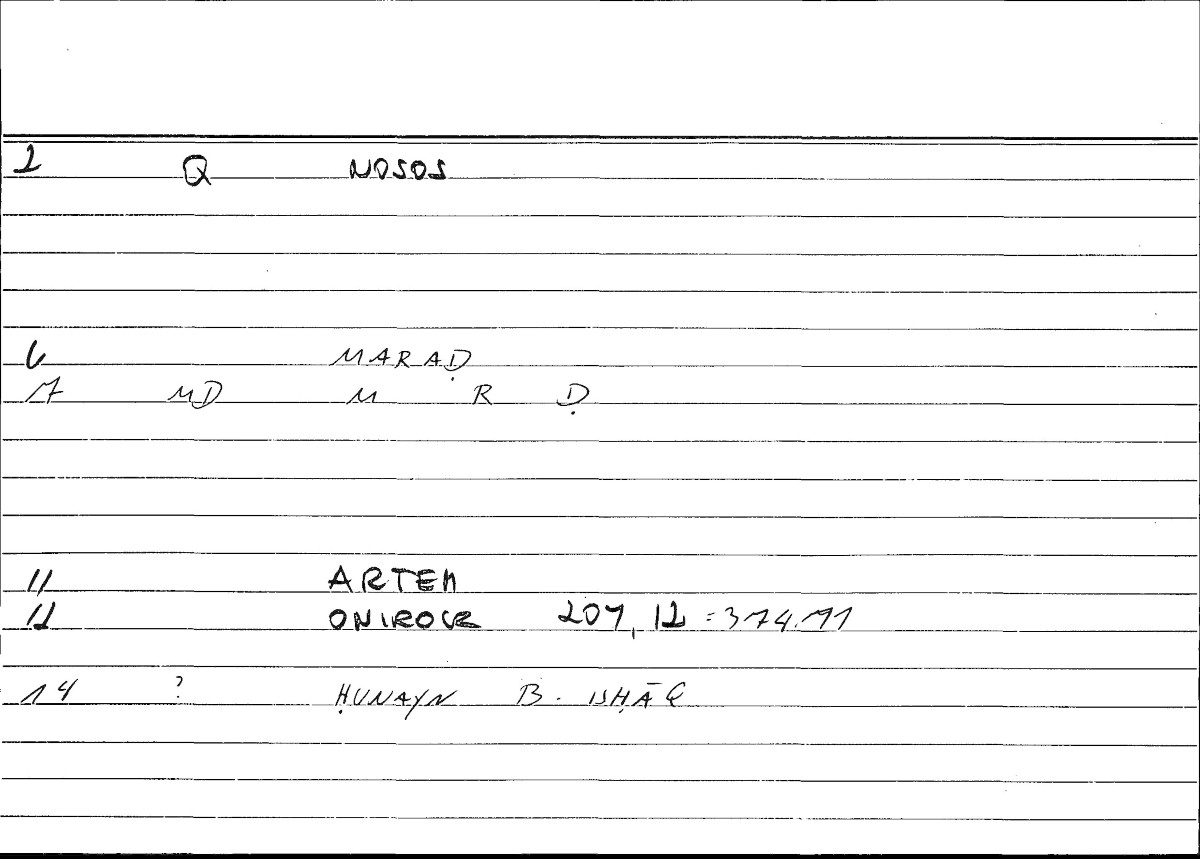 2 Q NOSOS
6 MARAḌ
7 MD M R Ḍ
11 ARTEM
12 ONIROCR 207, 12 = 374.11
14 ? ḤUNAYN B. ISḤĀQ